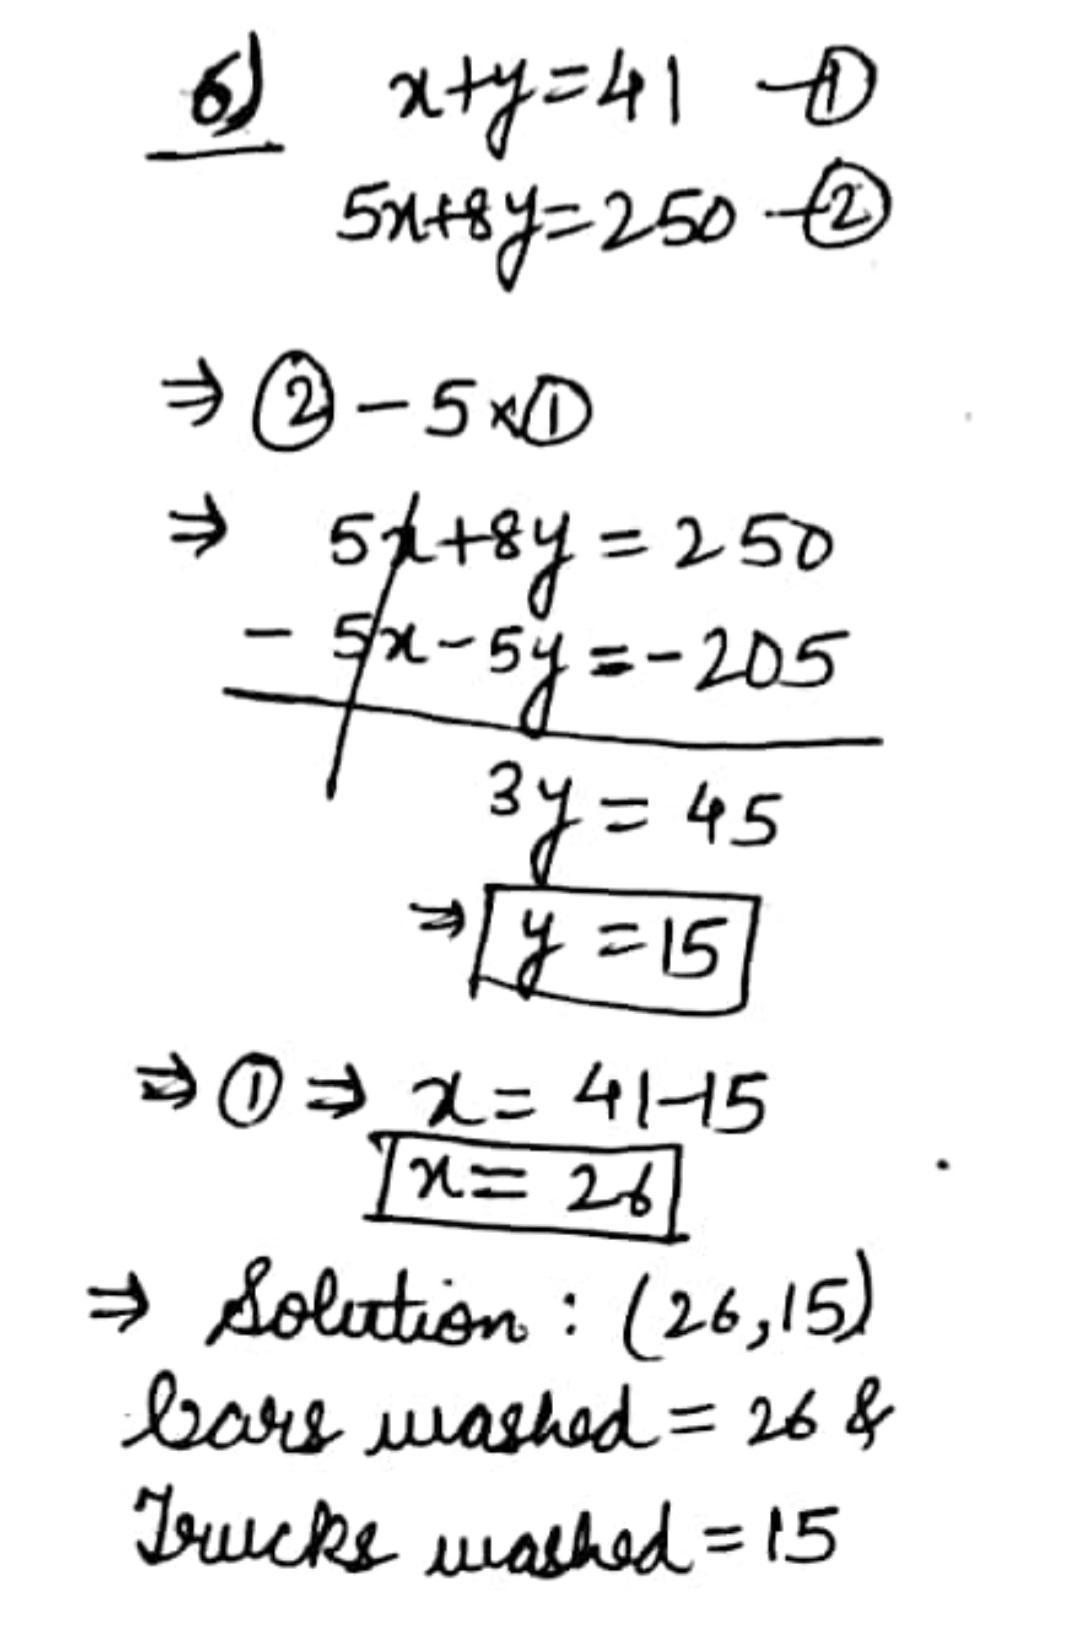 6) x+y=41 -①
5x+8y=250 -②
⇒ ② - 5×①
⇒ 5x+8y=250
- 5x-5y=-205
3y=45
⇒ y=15
⇒ ① ⇒ x=41-15
x=26
⇒ Solution: (26,15)
Cars washed=26 &
Trucks washed=15